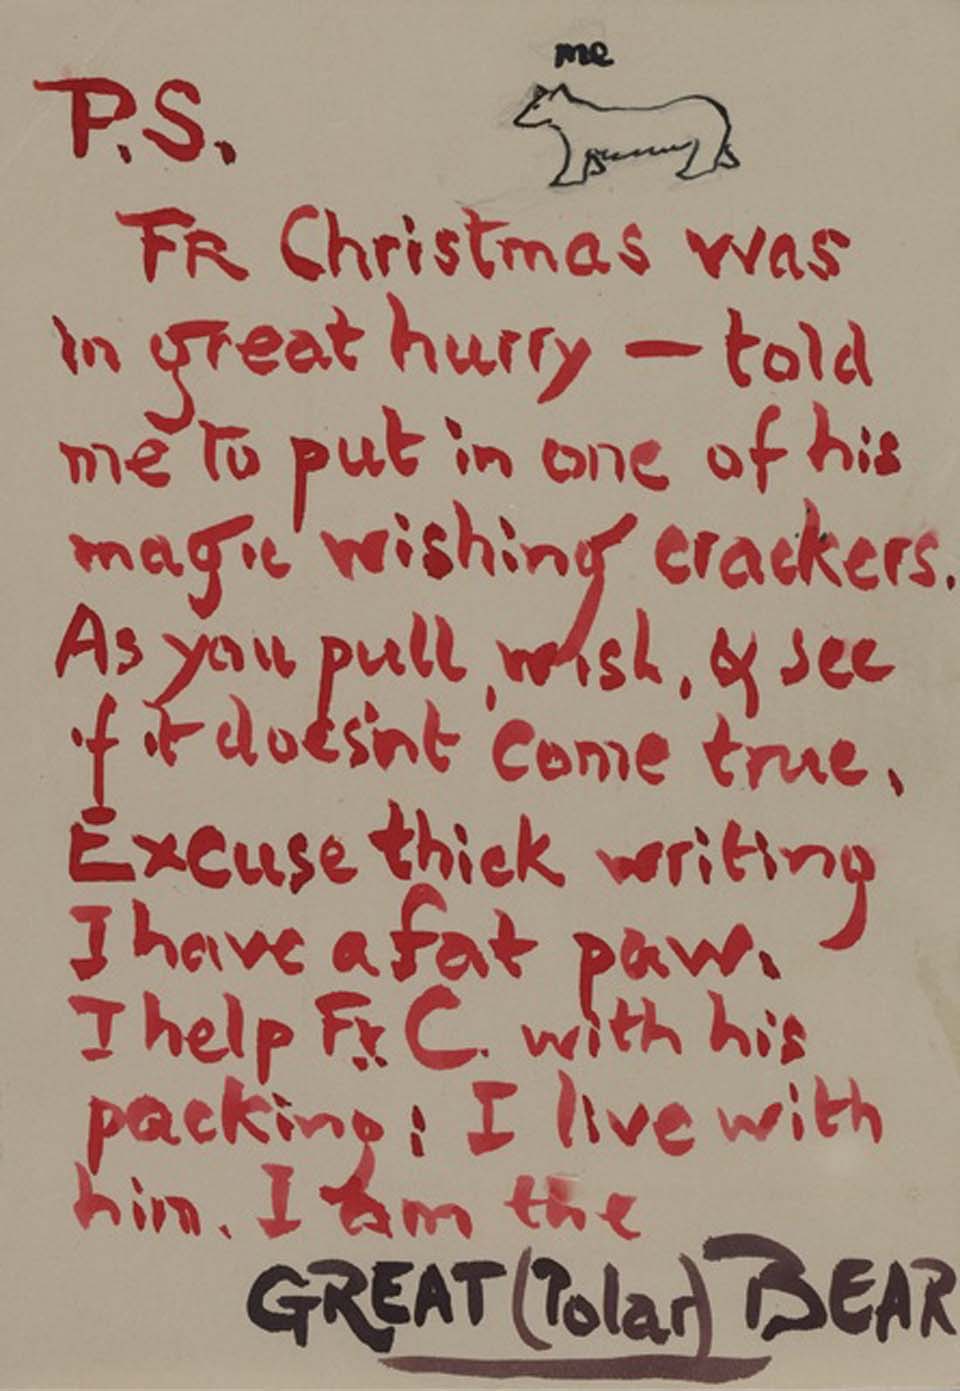 me
P.S.
FR Christmas was
in great hurry — told
me to put in one of his
magic wishing crackers.
As you pull, wish, & see
if it doesn't come true.
Excuse thick writing
I have a fat paw.
I help Fr. C. with his
packing: I live with
him. I am the
GREAT (Polar) BEAR